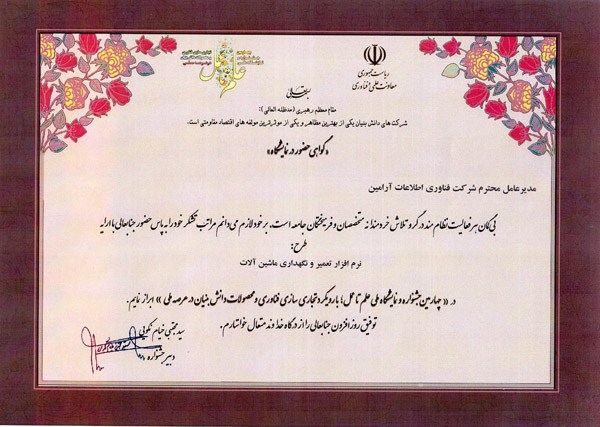 ریاست جمهوری
معاونت علمی و فناوری
علم تا عمل
بسمه تعالی
مقام معظم رهبری (مدظله العالی):
شرکت های دانش بنیان یکی از بهترین مظاهر و یکی از موثرترین مولفه های اقتصاد مقاومتی است.
«گواهی حضور در نمایشگاه»
مدیرعامل محترم شرکت فناوری اطلاعات آرامین
بی‌گمان هر فعالیت نظام مند در گرو تلاش خردمندانه متخصصان و فرهیختگان جامعه است. بر خود لازم می‌دانم مراتب تشکر خود را به پاس حضور جنابعالی با ارایه
طرح:
نرم افزار تعمیر و نگهداری ماشین آلات
در « چهارمین جشنواره و نمایشگاه ملی علم تا عمل؛ با رویکرد تجاری سازی فناوری و محصولات دانش بنیان در عرصه ملی » ابراز نمایم.
توفیق روزافزون جنابعالی را از درگاه خداوند متعال خواستارم.
سید مجتبی خیام نکویی
دبیر جشنواره